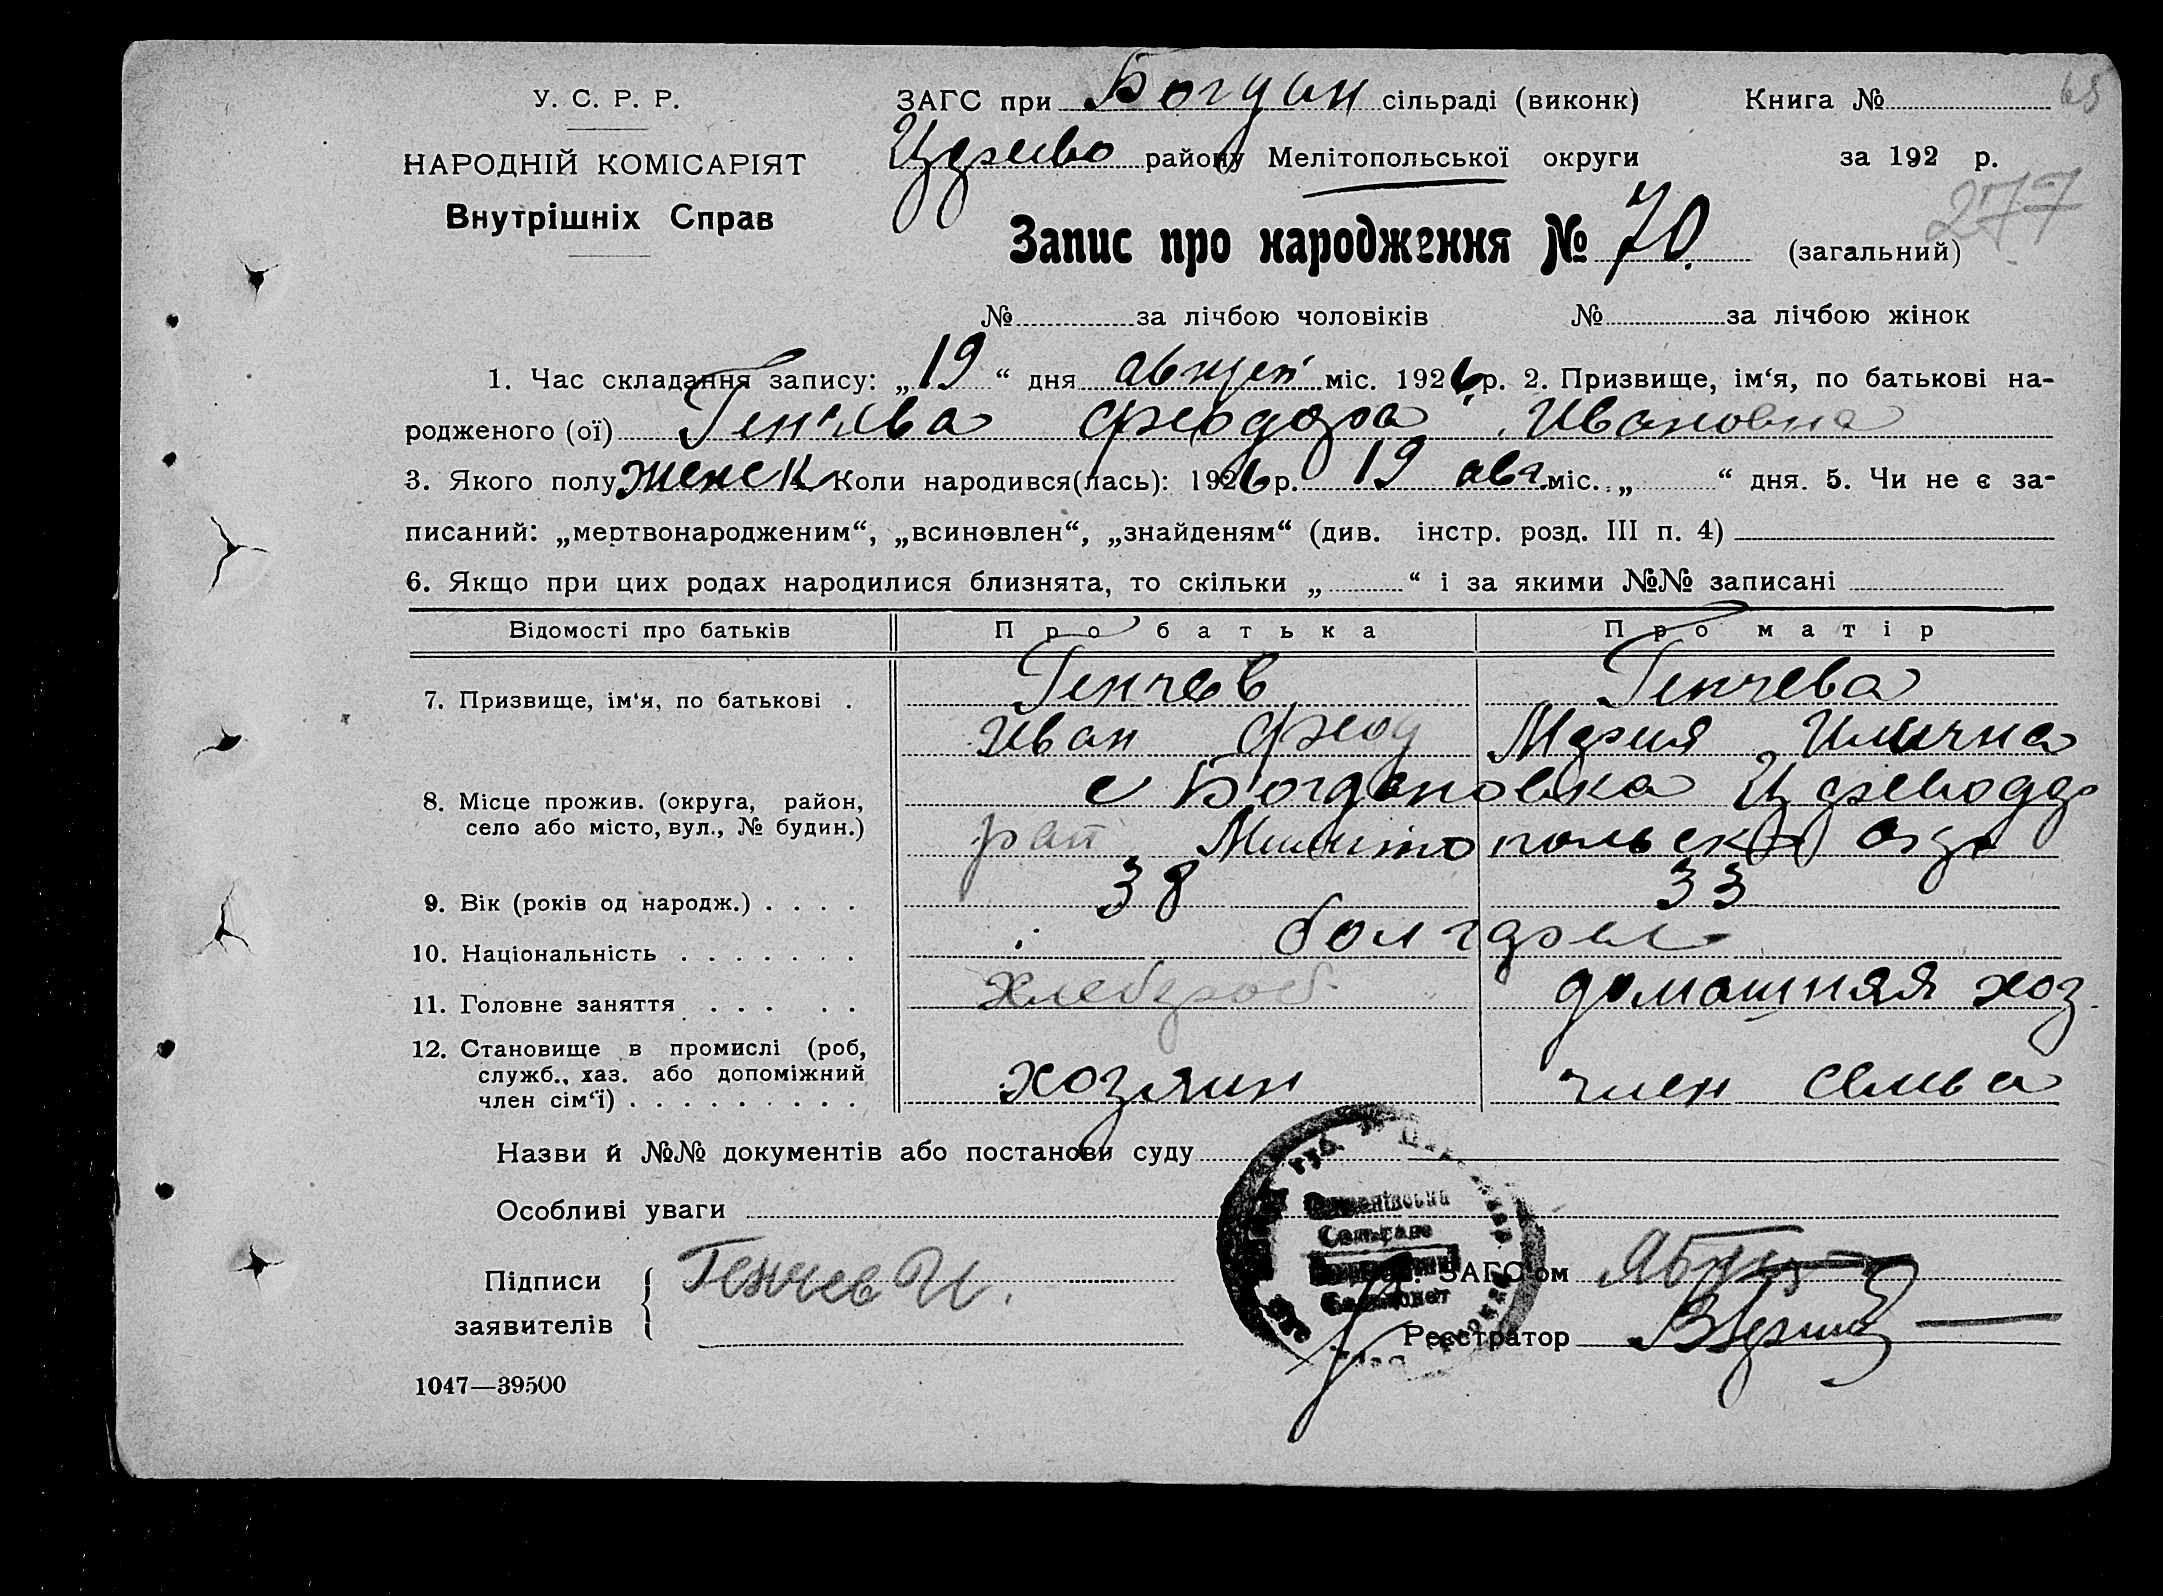 У. С. Р. Р.
ЗАГС при Богдан сільраді (виконк) Книга №
НАРОДНІЙ КОМІСАРІЯТ
району Мелітопольської округи за 192 р.
Внутрішніх Справ
277
Запис про народження № 70. (загальний)
№ за лічбою чоловіків № за лічбою жінок
1. Час складання запису: „ 19 “ дня август міс. 1926 р. 2. Призвище, ім‘я, по батькові на-
родженого (ої) Генчева Феодора Ивановна
3. Якого полу женск 4. Коли народився(лась): 1926 р. 19 авг. міс. „ “ дня. 5. Чи не є за-
писаний: „мертвонародженим“, „всиновлен“, „знайденям“ (див. інстр. розд. III п. 4)
6. Якщо при цих родах народилися близнята, то скільки „ “ і за якими №№ записані
Відомості про батьків Про батька Про матір
Генчев Генчева
7. Призвище, ім‘я, по батькові .
Иван Феод Мария Илична
8. Місце прожив. (округа, район, село або місто, вул., № будин.)
с Богдановка
38 33
9. Вік (років од народж.) . . . .
болгары
10. Національність . . . . . . .
Хлебороб. домашняя хоз.
11. Головне заняття . . . . .
12. Становище в промислі (роб,
служб., хаз. або допоміжний
хозяин член семьи
член сім‘ї) . . . . . . . . .
Назви й №№ документів або постанови суду
Особливі уваги
Підписи
заявителів
Генчев И.
ЗАГС‘ом
Реєстратор
1047—39500